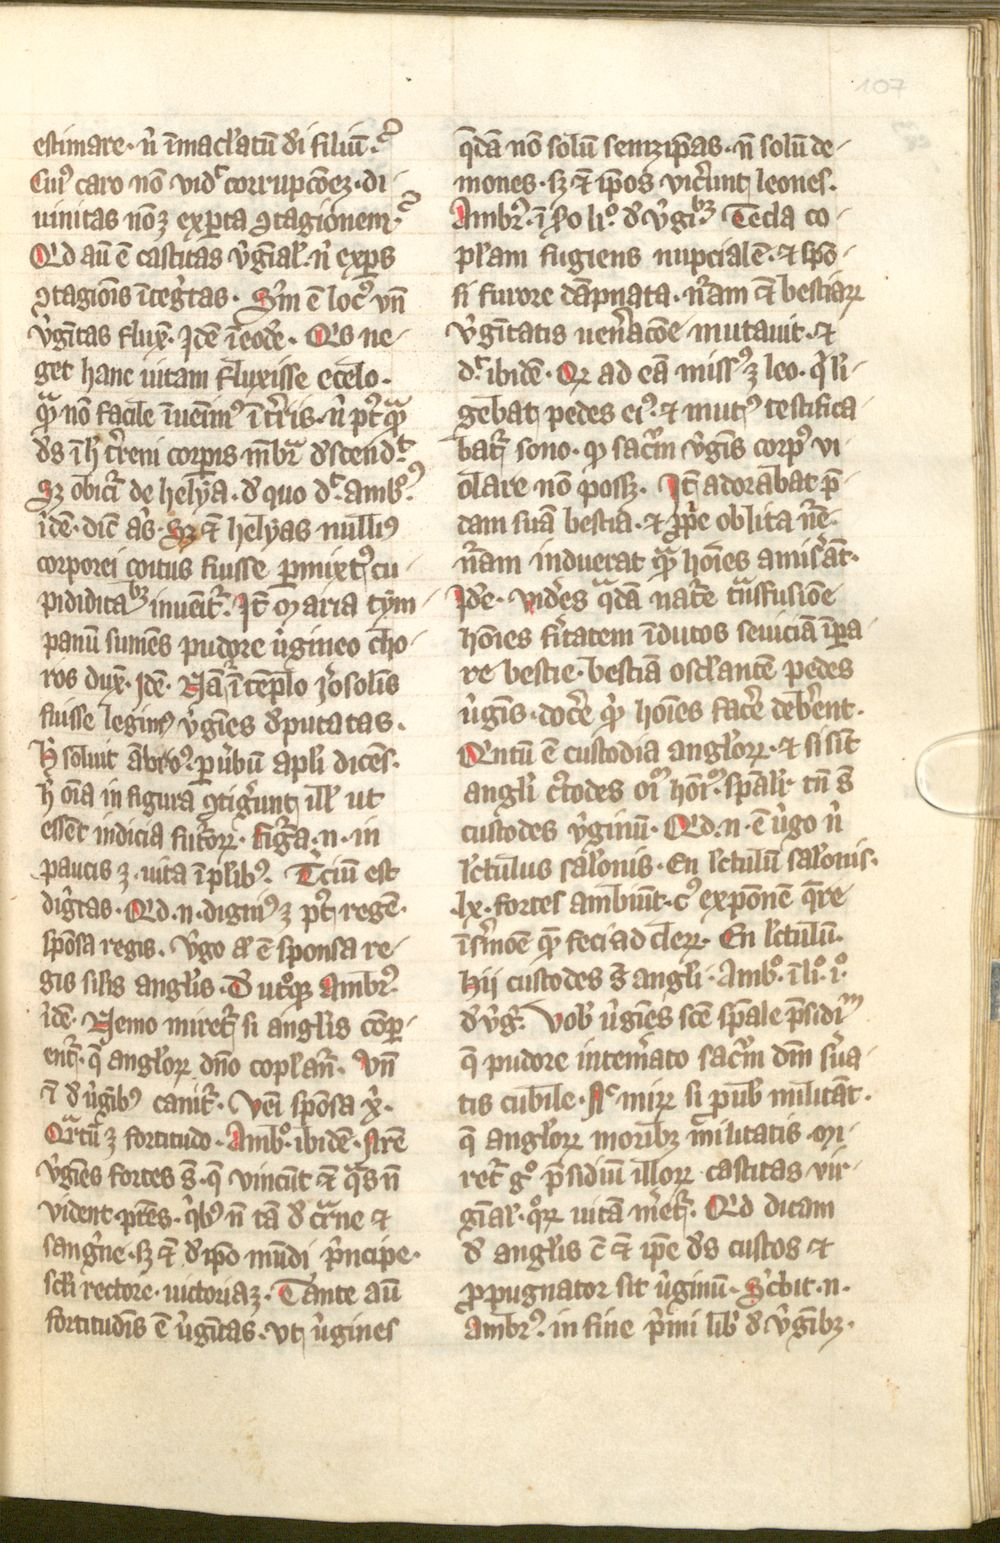 107
estimare. nͥ īmaclatū dī filiū.
Cuiꝰ caro nō vidͭ corrupcōeꝫ. di-
uinitas nōꝫ exꝑta ꝯtagionem.
Qͥd aū ē castitas vͥgīal. nͥ exꝑs
ꝯtagiōis ītegͥtas. Scm̄ ē locꝰ vn̄
vͥgīitas flux̄. Idē īeodē. Qͥs ne-
get hanc uitam fluxisse ecelo.
qͣꝫ nō facile īuenimꝰ ītrͥis. nͥ pꝰtqͣꝫ
ds̄ ī h̄ tͥreni corꝑis mēbrͣ dͥscendͭ
Sꝫ obicͥt de helya. dͥ quo dͭ. ambꝰ.
idē. dic̄ as̄. Sꝫ ⁊̄ helyas nulliꝰ
corporei coitus fuisse ꝑmixtꝰ cu-
pididitatibꝫ inuēitͬ. It̄ Maria tym-
panū sumēs pudore uͥgineo cho-
ros dux̄. Idē. Nā ī tēplo Iroͥsolīs
fuisse legimꝰ vͥgīes dͥputatas.
H̄ soluit ābroꝰ. ꝑ uͥbū apl̄i dicēs.
h̄ oīa in figura ꝯtigͥunt ill̄ ut
essēt indicia futͬoꝝ. Figͬa. n. in
paucis ꝫ. uita ī pl̄ibꝰ. Tͥciū est
digͥtas. Qͥd. n. digniꝰ ꝫ pꝰt regē.
spōsa regis. vͥgo aͫ ē sponsa re-
gis sil̄is angl̄is. Vͥ utͦqꝫ Ambrꝰ.
idē. Nemo miretͬ si angl̄is cōpͣ-
entͬ. q̄ angl̄oꝝ dn̄o copl̄anͬ. vn̄
⁊ dͥ uͥgībꝰ canitͬ. Ven̄ı spōsa xͥ.
Qͣrtū ꝫ fortitudo. Ambͦ. ibidē. Sūt
vͥgīes fortes s̄. q̄ vincūt ⁊ qͣs n̄
vident ptēs. qͥbꝰ n̄ tā dͥ cͣrne ⁊
sangͥne. sꝫ ⁊̄ dͥ ipō mūdi pͥncipe.
scl̄i rectore. uictoriaꝫ. Tante aū
fortitudīs ē uͥgīitas. vt uͥgines
qͣdā nō solū semꝫip̄as. n̄ solū de-
mones. sꝫ ⁊ ip̄os vicͥunt leones.
Ambrꝰ. ī sͦo liͦ. dͥ vͥgībꝫ Tecla co-
pl̄am fugiens nupcialē. ⁊ spō-
si furore dāpnata. nͬam ⁊̄ bestiaꝝ
vͥgīitatis uenͥacōe mutauit. ⁊
dͭ. ibidē. Qꝝ ad eā missꝰ ꝫ leo. qͥ li-
gebat pedes eiꝰ. ⁊ mutꝰ testifica-
batͬ sono. ꝙ sacͬm vͥgīs corpꝰ vi-
olare nō posset. It̄ adorabat p̄-
dam suā bestia. ⁊ ꝓpͥe oblita nͬe.
nͬam induerat qͣꝫ hoīes amisͥāt.
Idē. videͥs qͣdā natͬe tͣnsfusiōe
hoīes fͥitatem īdutos seuiciā īꝑa-
re bestie. bestiā oscl̄antē pedes
uͥgīs. docͥe qͥd hoīes facͥe debͥent.
Qͣrtū ē custodia angl̄oꝝ. ⁊ si sīt
angl̄i cͬtodes oīm hoīm. spālit̄ tn̄ s̄
custodes vͥginū. Qͥd. n. ē uͥgo nͥ
lctulus salōnis. En lctulū salonis.
lx. fortes ambiūt. cꝰ exponē qͬe
ī sͥmoē qͣꝫ feci ad cleꝝ. En lctulū.
hij custodes s̄ angl̄i. Ambͦ. ī liͦ. iͦ.
dͥ vͥg. Vob uͥgīes scē spāle p̄sidiū
q̄ pudore intemͥato sacͬm dn̄i sͥua-
tis cubile. Nͨ miꝝ si ꝓ uob militāt.
q̄ angl̄oꝝ moribꝫ militatis. Me-
retͬ gͦ p̄sidiū illoꝝ castitas vir-
gīal. qͦꝝ uitā mͥetͬ. Qͥd dicam
dͥ angl̄is c̄ ⁊̄ ip̄e ds̄ custos ⁊
ꝓpugnator sit uͥginū. Sͥcbit. n.
ambrꝰ. in fine pͥmi lib̄ dͥ vͥgībꝫ.